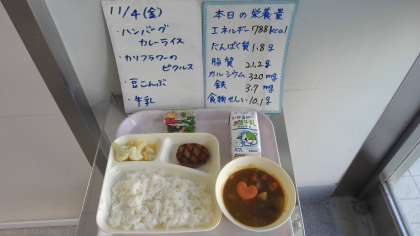 11/4(金)
・ハンバーグ
カレーライス
・カリフラワーの
ピクルス
・豆こんぶ
・牛乳
本日の栄養量
エネルギー 788kcal
たんぱく質 1.8g
脂質 21.2g
カルシウム 320mg
鉄 3.7mg
食物せんい 10.1g